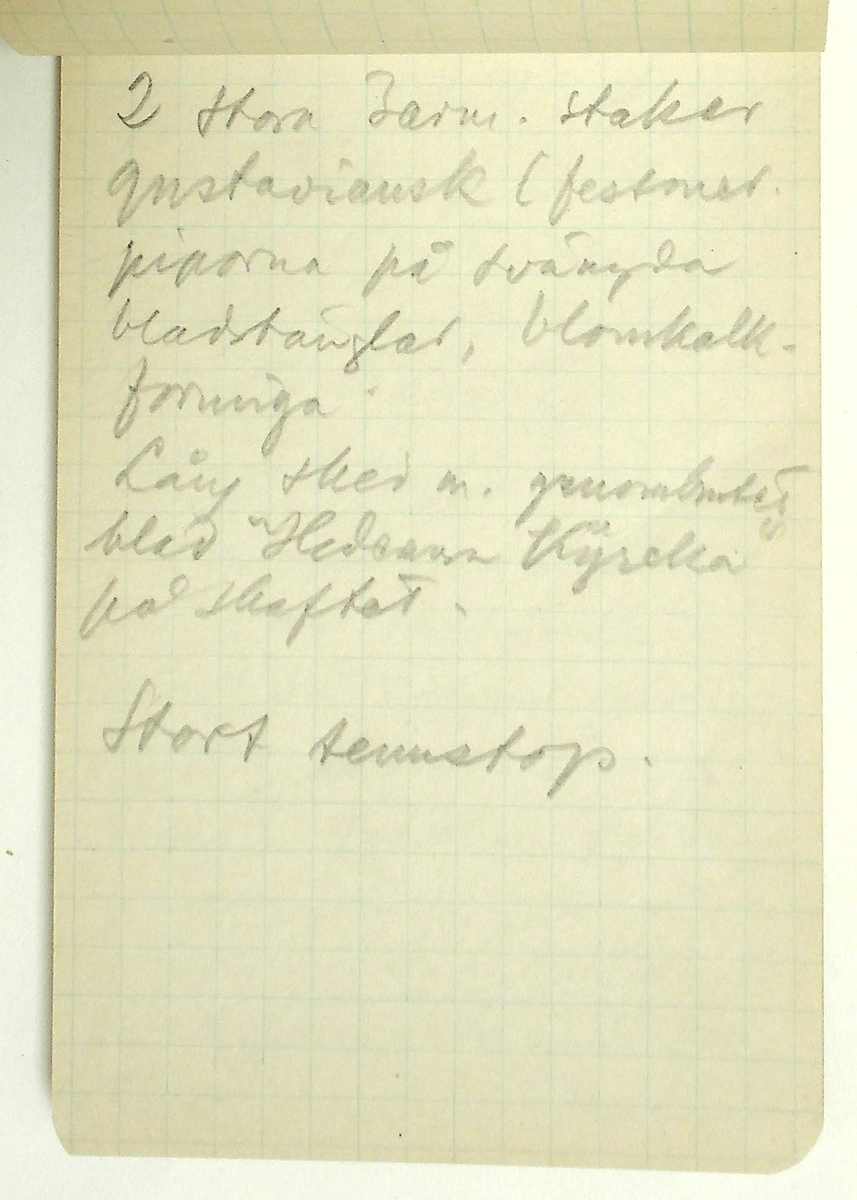 2 stora 3arm. staker
gustaviansk (festoner.
piporna på svängda
bladstänglar, blomkalk-
formiga.
Lång sked m. genombrutet
blad "Hedesunn Kÿrcka"
på skaftet.
Stort tennstop.